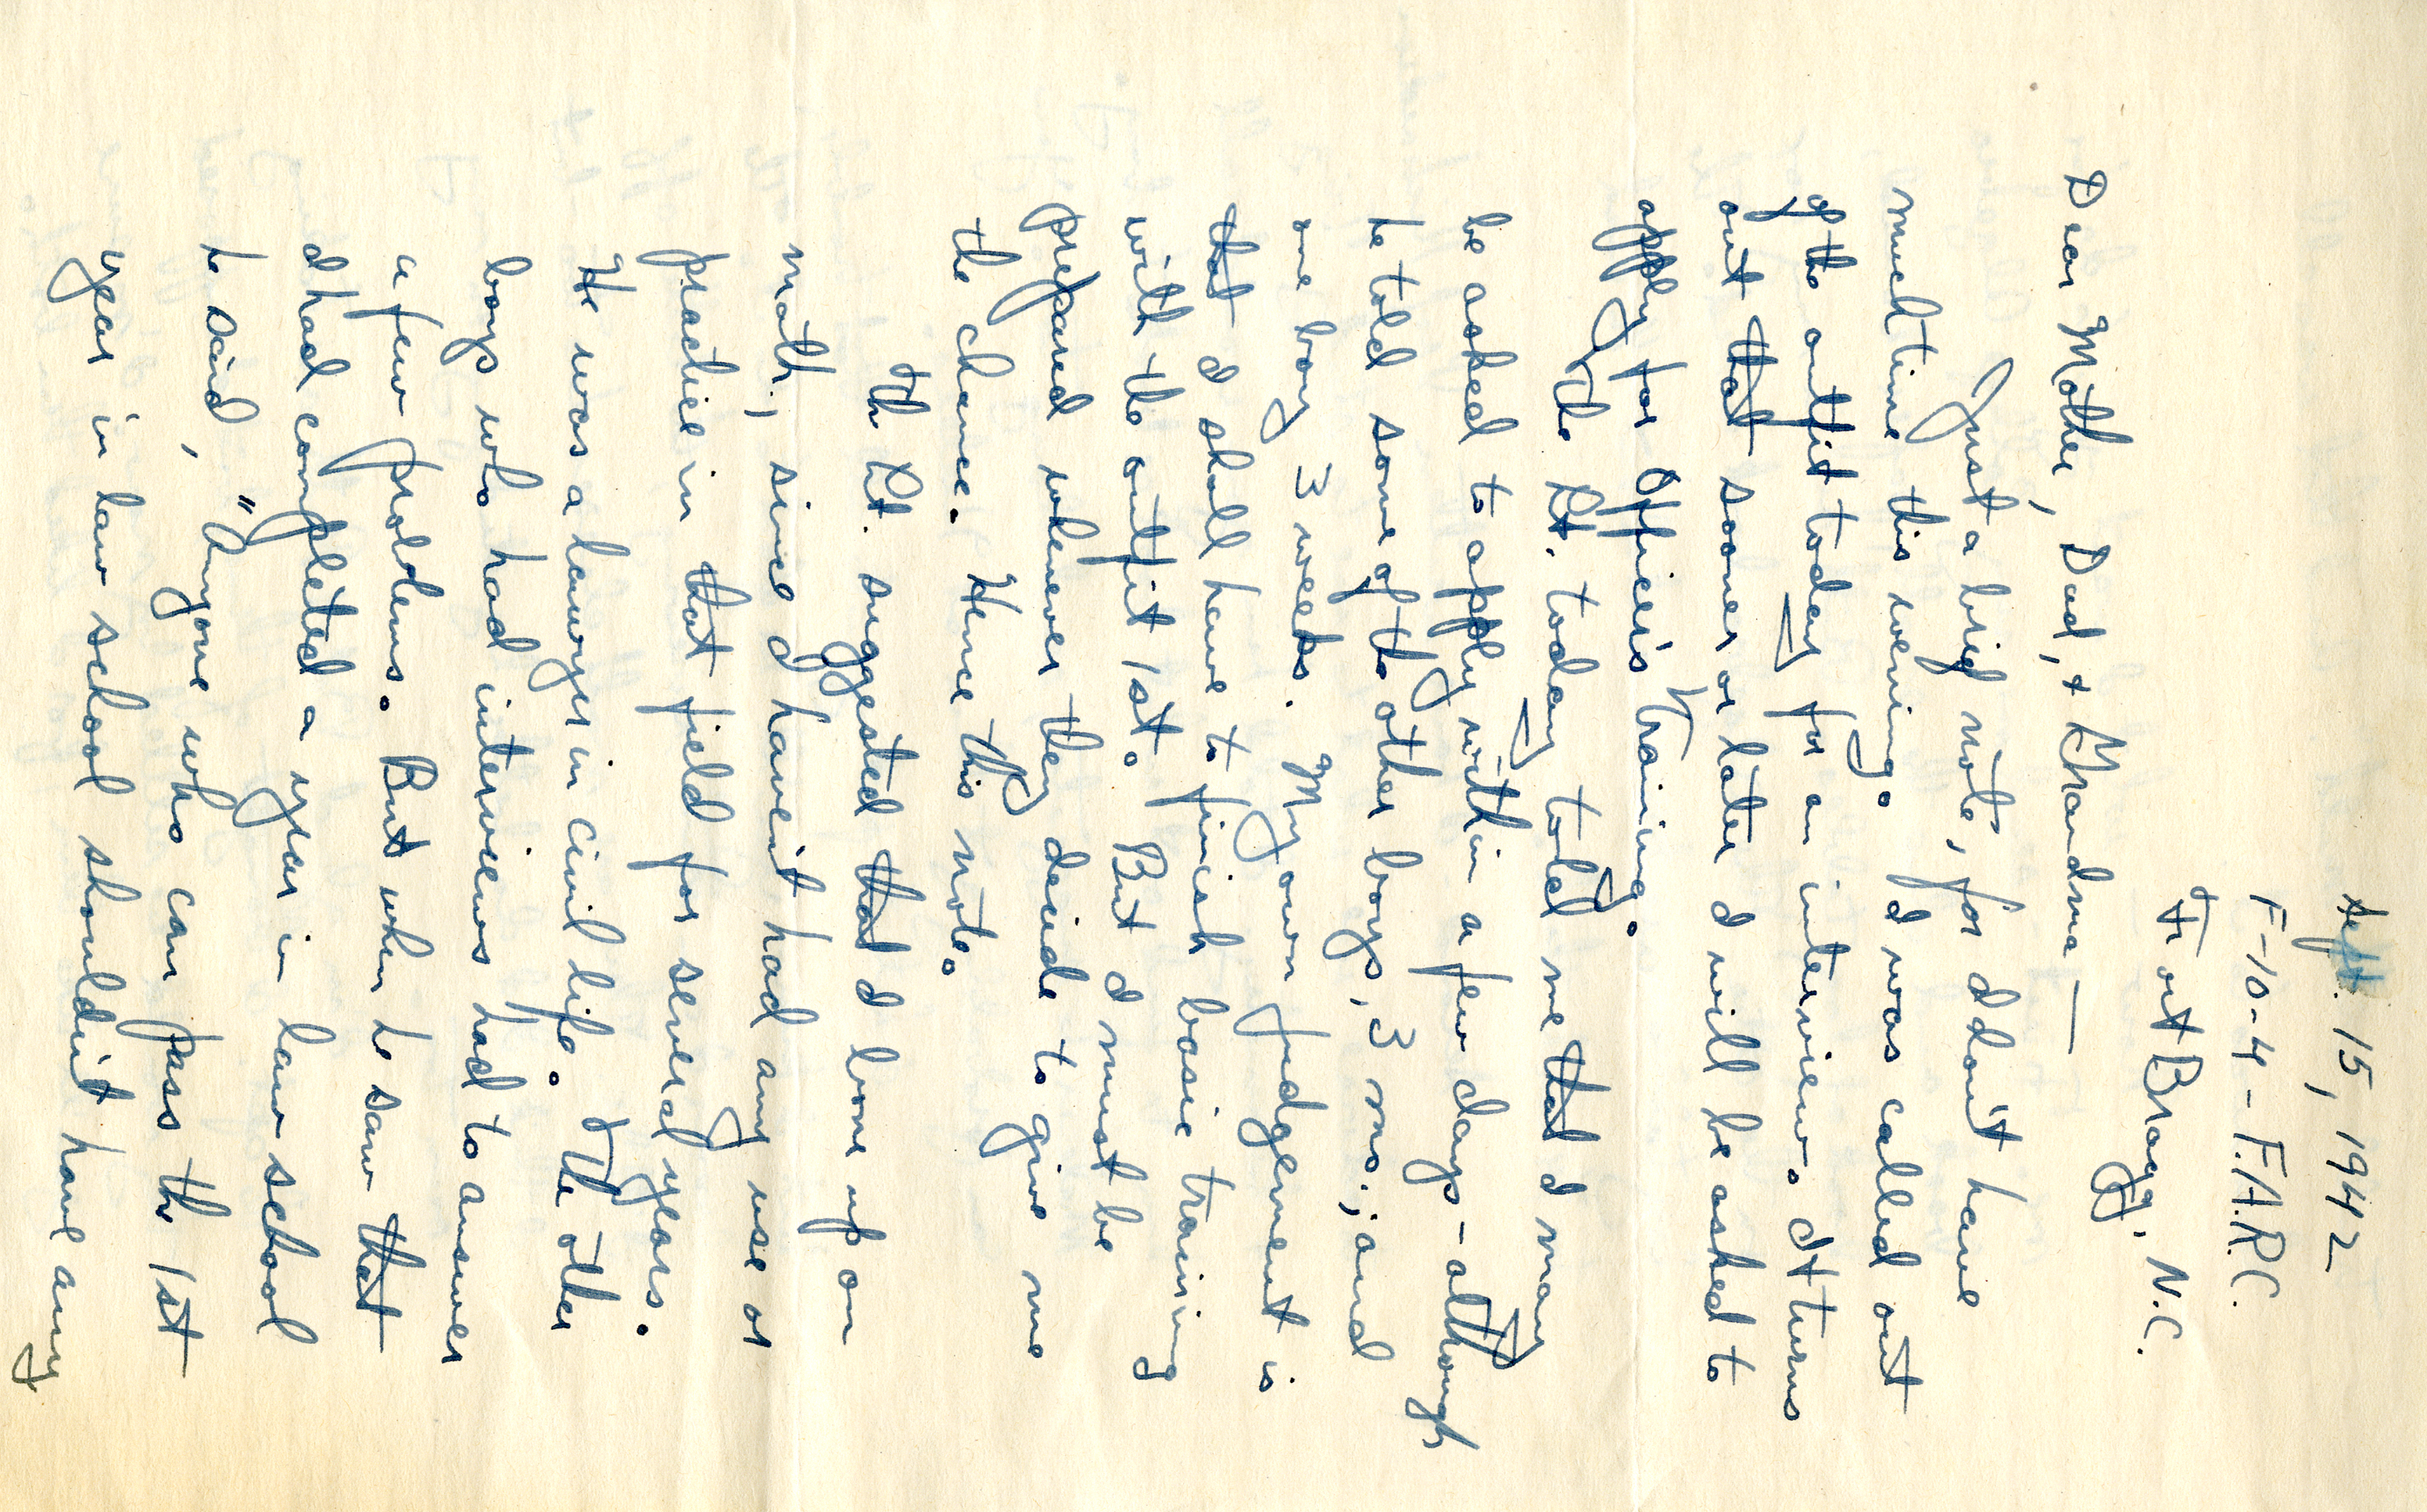 Sept. 15, 1942
F-10-4-F.A.R.C.
Fort Bragg, N.C.
Dear Mother, Dad, + Grandma —
Just a brief note, for I don't have
much time this evening. I was called out
of the outfit today for an interview. It turns
out that sooner or later I will be asked to
apply for Officer's Training.
The Lt. today told me that I may
be asked to apply within a few days - although
he told some of the other boys, 3 mo.; and
one boy 3 weeks. My own judgement is
that I shall have to finish basic training
with the outfit 1st. But I must be
prepared whenever they decide to give me
the chance. Hence this note.
The Lt. suggested that I bone up on
math, since I haven't had any use or
practice in that field for several years.
He was a lawyer in civil life. The other
boys who had interviews had to answer
a few problems. But when he saw that
I had completed a year in law school
he said, "Anyone who can pass the 1st
year in law school shouldn't have any